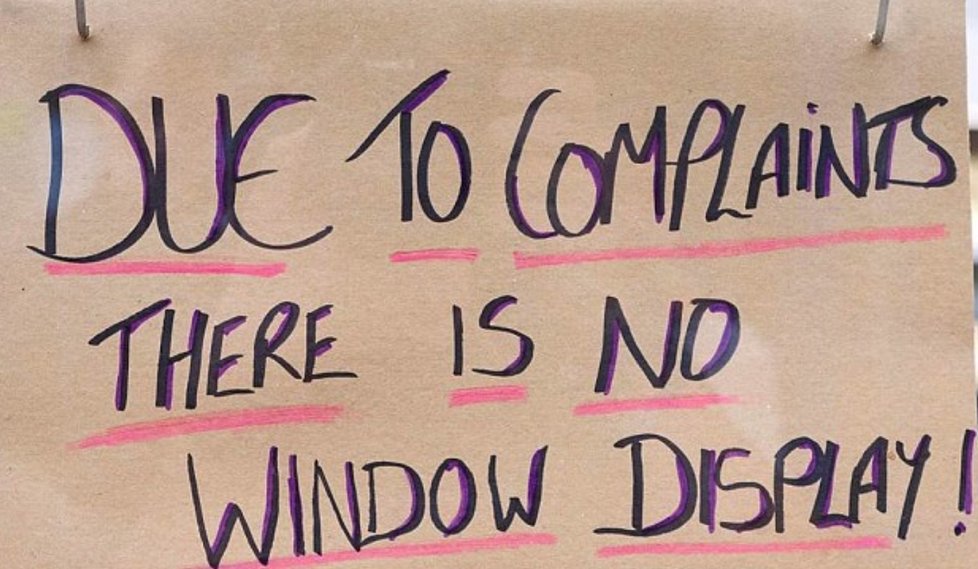 DUE TO COMPLAINTS
THERE IS NO
WINDOW DISPLAY!